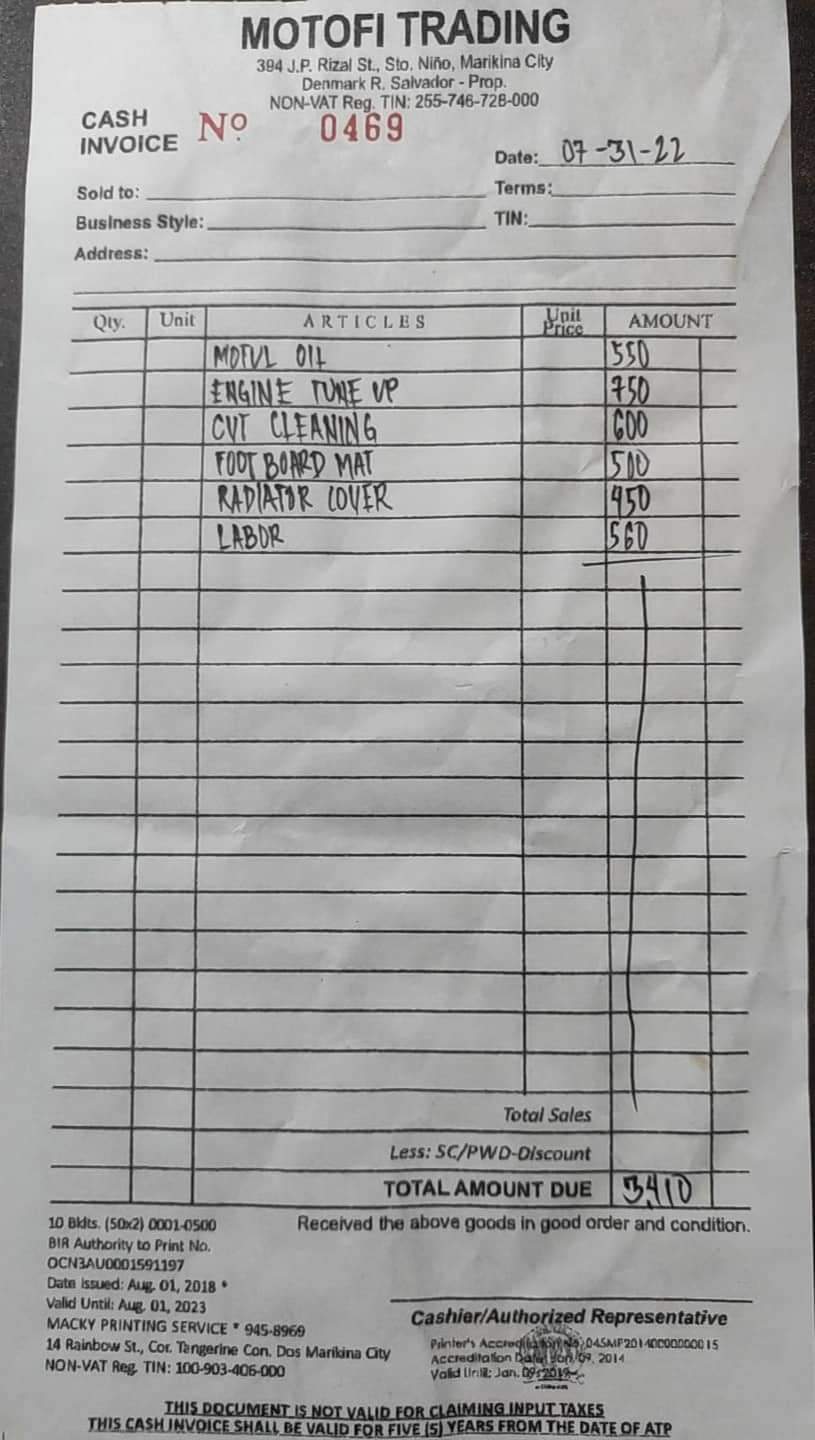 MOTOFI TRADING
394 J.P. Rizal St., Sto. Niño, Marikina City
Denmark R. Salvador - Prop.
NON-VAT Reg. TIN: 255-746-728-000
CASH INVOICE Nº 0469
Date: 07-31-22
Sold to: Terms:
Business Style: TIN:
Address:
Qty. Unit ARTICLES Unit Price AMOUNT
MOTUL OIL 550
ENGINE TUNE UP 750
CVT CLEANING 600
FOOT BOARD MAT 500
RADIATOR COVER 450
LABOR 560
Total Sales
Less: SC/PWD-Discount
TOTAL AMOUNT DUE 3,410
10 Bklts. (50x2) 0001-0500
Received the above goods in good order and condition.
BIR Authority to Print No.
OCN3AU0001591197
Date Issued: Aug. 01, 2018 *
Valid Until: Aug. 01, 2023
MACKY PRINTING SERVICE * 945-8969
14 Rainbow St., Cor. Tangerine Con. Dos Marikina City
NON-VAT Reg. TIN: 100-903-406-000
Cashier/Authorized Representative
Printer's Accreditation No.
Accreditation Date: Jan. 09, 2014
Valid Until: Jan. 09, 2019
THIS DOCUMENT IS NOT VALID FOR CLAIMING INPUT TAXES
THIS CASH INVOICE SHALL BE VALID FOR FIVE (5) YEARS FROM THE DATE OF ATP